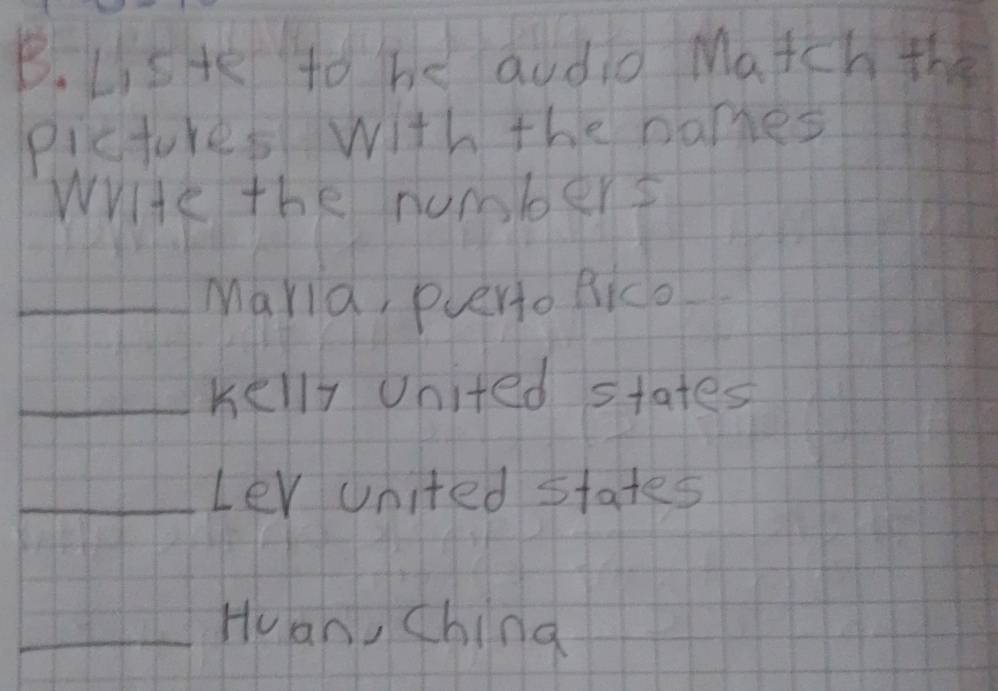 B. Liste to he audio Match the
pictures with the names
Write the numbers
_____ Maria, puerto Rico
_____ Kelly United states
_____ Lev united states
_____ Huan, China